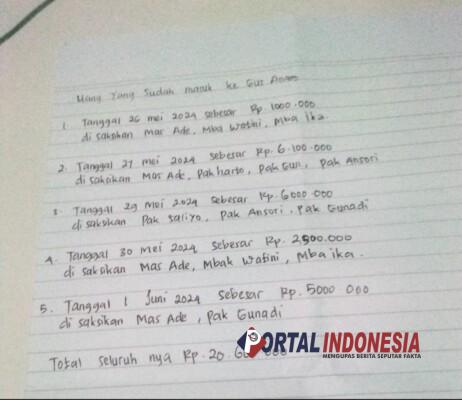 Uang Yang Sudah masuk ke Gus Anom
1. Tanggal 26 mei 2024 sebesar Rp. 1000.000
di saksikan Mas Ade, Mba Watini, Mba ika.
2. Tanggal 27 mei 2024 sebesar Rp. 6.100.000
di saksikan Mas Ade, Pak harto, Pak Gun, Pak Ansori
3. Tanggal 29 mei 2024 sebesar Rp. 6000.000
di saksikan Pak Saliyo, Pak Ansori, Pak Gunadi
4. Tanggal 30 mei 2024 sebesar Rp. 2500.000
di saksikan Mas Ade, Mbak Watini, Mba ika.
5. Tanggal 1 Juni 2024 sebesar Rp. 5000 000
di saksikan Mas Ade, Pak Gunadi
Total seluruh nya Rp. 20.
PORTAL INDONESIA
MENGUPAS BERITA SEPUTAR FAKTA